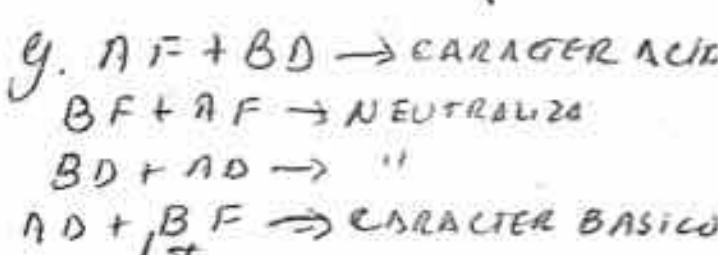 y. AF + BD → CARACTER ACID
BF + AF → NEUTRALIZA
BD + AD → "
AD + BF → CARACTER BASICO